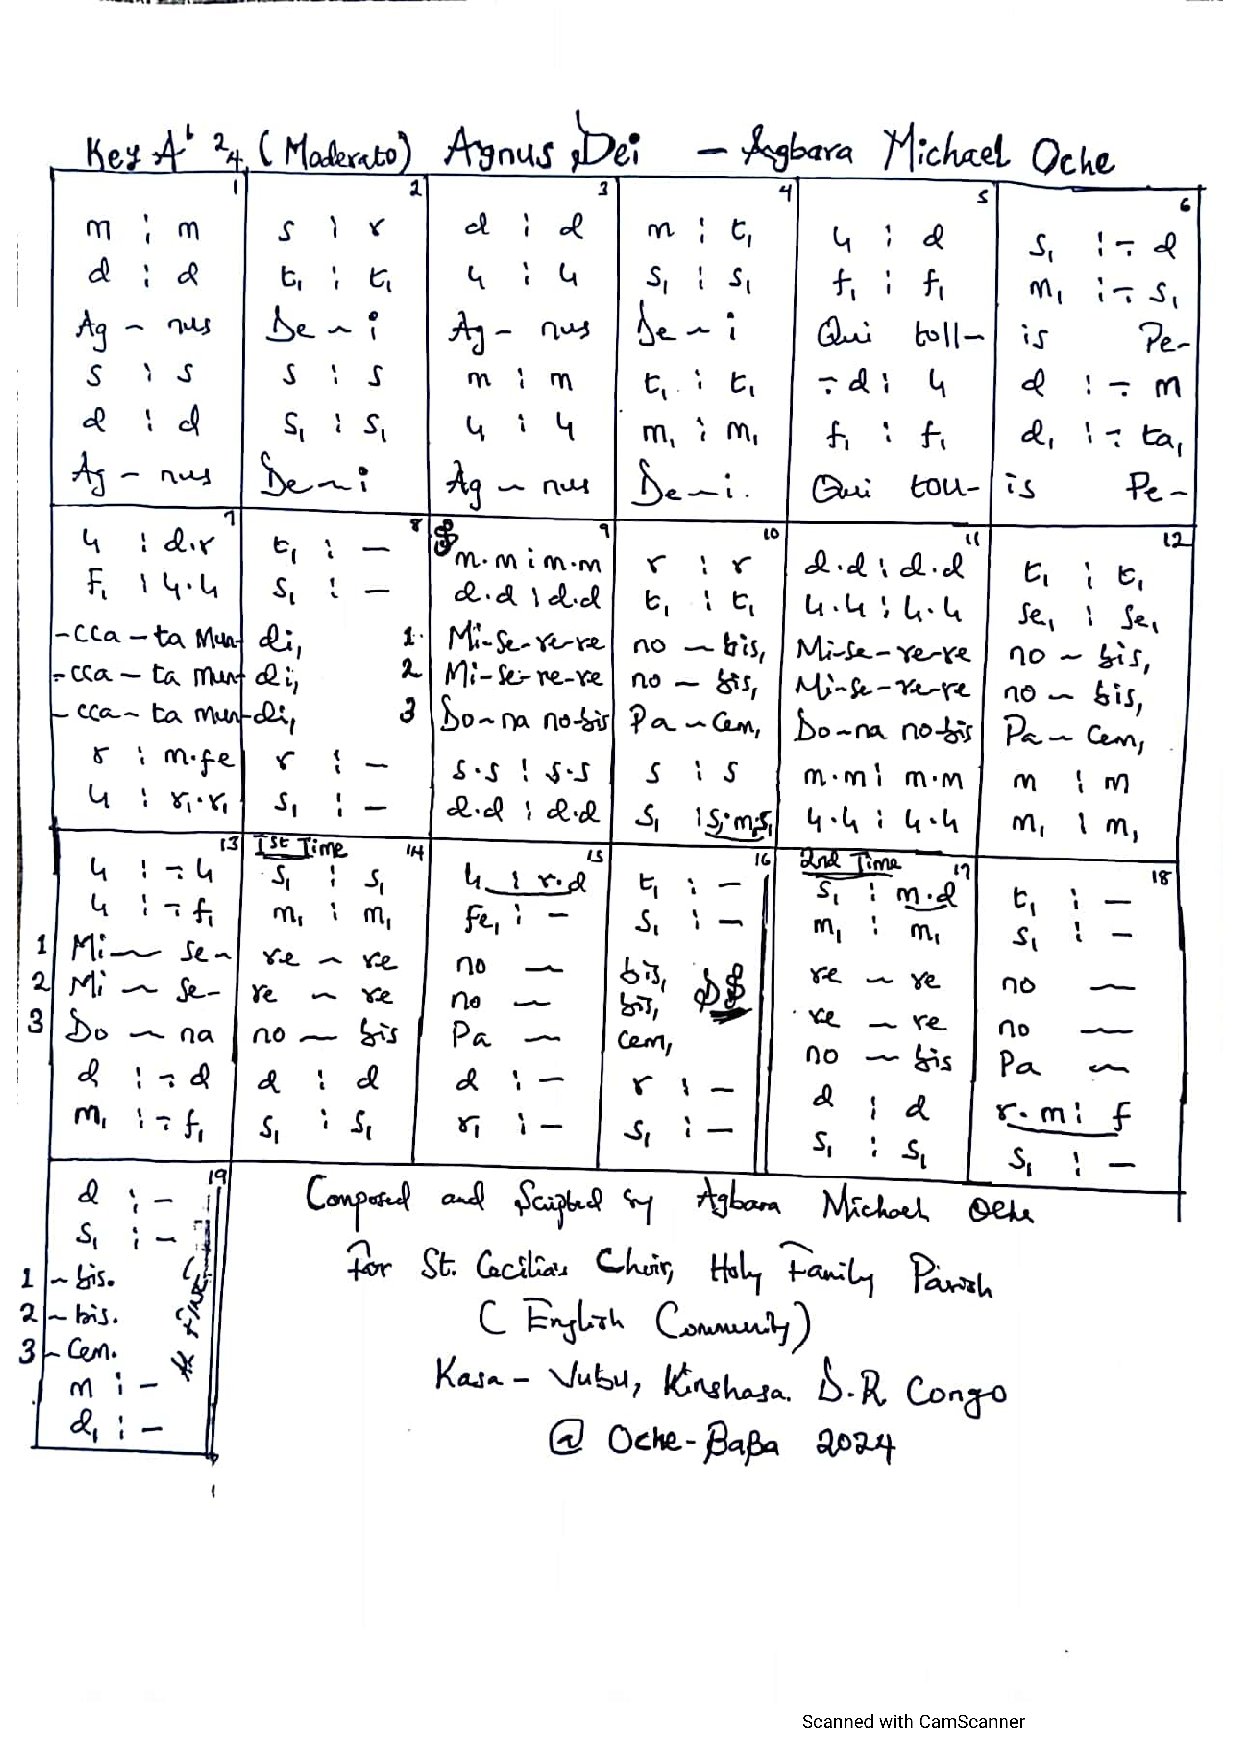 Key Ab 2/4 (Moderato) Agnus Dei - Agbara Michael Oche
1 2 3 4 5 6
m : m s : r d : d m : t₁ l₁ : d s₁ : - d
d : d t₁ : t₁ l₁ : l₁ s₁ : s₁ f₁ : f₁ m₁ : - s₁
Ag - nus De - i Ag - nus De - i Qui toll- is Pe-
s : s s : s m : m t₁ : t₁ - d : l₁ d : - m
d : d s₁ : s₁ l₁ : l₁ m₁ : m₁ f₁ : f₁ d₁ : - ta₁
Ag - nus De - i Ag - nus De - i. Qui toll- is Pe-
7 8 9 10 11 12
l₁ : d.r t₁ : - m.m : m.m r : r d.d : d.d t₁ : t₁
F₁ : l₁.l₁ s₁ : - d.d : d.d t₁ : t₁ l₁.l₁ : l₁.l₁ se₁ : se₁
-cca - ta Mun di, 1. Mi-se-re-re no - bis, Mi-se-re-re no - bis,
-cca - ta mun di, 2 Mi-se-re-re no - bis, Mi-se-re-re no - bis,
- cca - ta mun-di, 3 Do-na no-bis Pa - cem, Do-na no-bis Pa - cem,
r : m.fe r : - s.s : s.s s : s m.m : m.m m : m
l₁ : r₁.r₁ s₁ : - d.d : d.d s₁ : s₁.m₁s₁ l₁.l₁ : l₁.l₁ m₁ : m₁
13 1st Time 14 15 16 2nd Time 17 18
l₁ : - l₁ s₁ : s₁ l₁ : r.d t₁ : - s₁ : m.d t₁ : -
l₁ : - f₁ m₁ : m₁ fe₁ : - s₁ : - m₁ : m₁ s₁ : -
1 Mi - se- re - re no - bis, re - re no -
2 Mi - se- re - re no - bis, D$ re - re no -
3 Do - na no - bis Pa - cem, no - bis Pa -
d : - d d : d d : - r : - d : d r.m : f
m₁ : - f₁ s₁ : s₁ r₁ : - s₁ : - s₁ : s₁ s₁ : -
19
d : -
s₁ : -
1 - bis.
2 - bis.
3 - Cem.
m : -
d₁ : -
Composed and Scripted by Agbara Michael Oche
For St. Cecilia's Choir, Holy Family Parish
(English Community)
Kasa - Vubu, Kinshasa. D.R Congo
@ Oche-BaBa 2024
Scanned with CamScanner